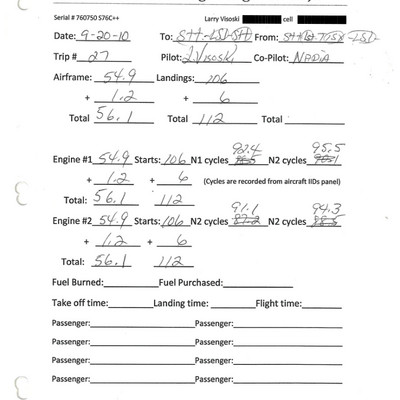 Serial # 760750 S76C++ Larry Visoski cell
Date: 9-20-10 To: From:
Trip # 27 Pilot: L. Visoski Co-Pilot: NADIA
Airframe: 54.9 Landings: 106
+ 1.2 + 6
Total 56.1 Total 112 Total
92.4 95.5
Engine #1 54.9 Starts: 106 N1 cycles N2 cycles
+ 1.2 + 6 (Cycles are recorded from aircraft IIDs panel)
Total: 56.1 112
91.1 94.3
Engine #2 54.9 Starts: 106 N2 cycles 87.2 N2 cycles 88.5
+ 1.2 + 6
Total: 56.1 112
Fuel Burned: Fuel Purchased:
Take off time: Landing time: Flight time:
Passenger: Passenger:
Passenger: Passenger:
Passenger: Passenger:
Passenger: Passenger: